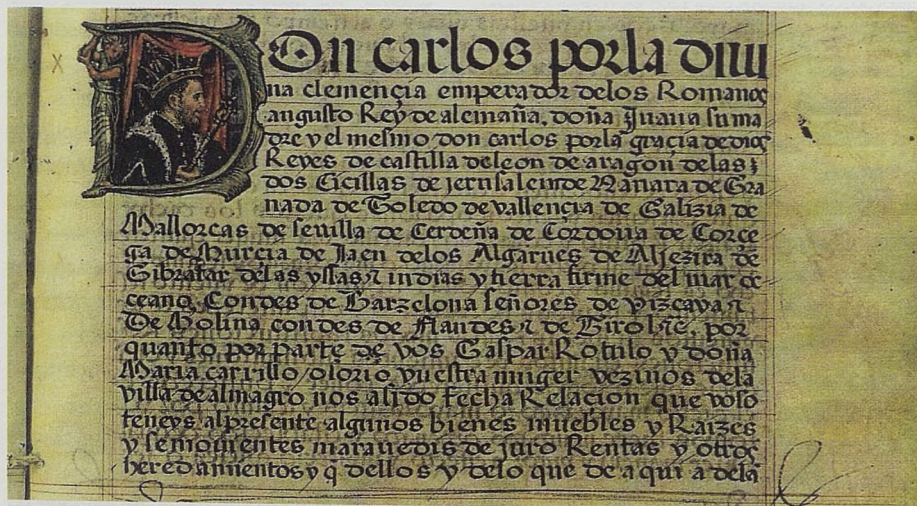 Don carlos por la diui
na clemençia emperador delos Romanos
augusto Rey de alemaña. doña Juana su ma
dre y el mesmo don carlos por la gracia de dios
Reyes de castilla de leon de aragon de las
dos Ecicillas de jerusalem de Nauara de Gra
nada de Toledo de vallençia de Galizia de
Mallorcas de seuilla de Cerdeña de Cordoua de Corce
ga de Murcia de Jaen delos Algarues de Aljezira de
Gibraltar de las yslas ⁊ indias y tierra firme del mar o
ceano, Condes de Barzelona señores de vizcaya ⁊
De Molina condes de Flandes ⁊ de Tirol ⁊c. por
quanto por parte de vos Gaspar Rotulo y doña
Maria carrillo osorio vuestra muger vezinos dela
villa de almagro nos a sido fecha Relacion que voso
teneys al presente algunos bienes muebles y Raizes
y semouientes marauedis de juro Rentas y otros
heredamientos y q̃ dellos y delo que de aqui a dela